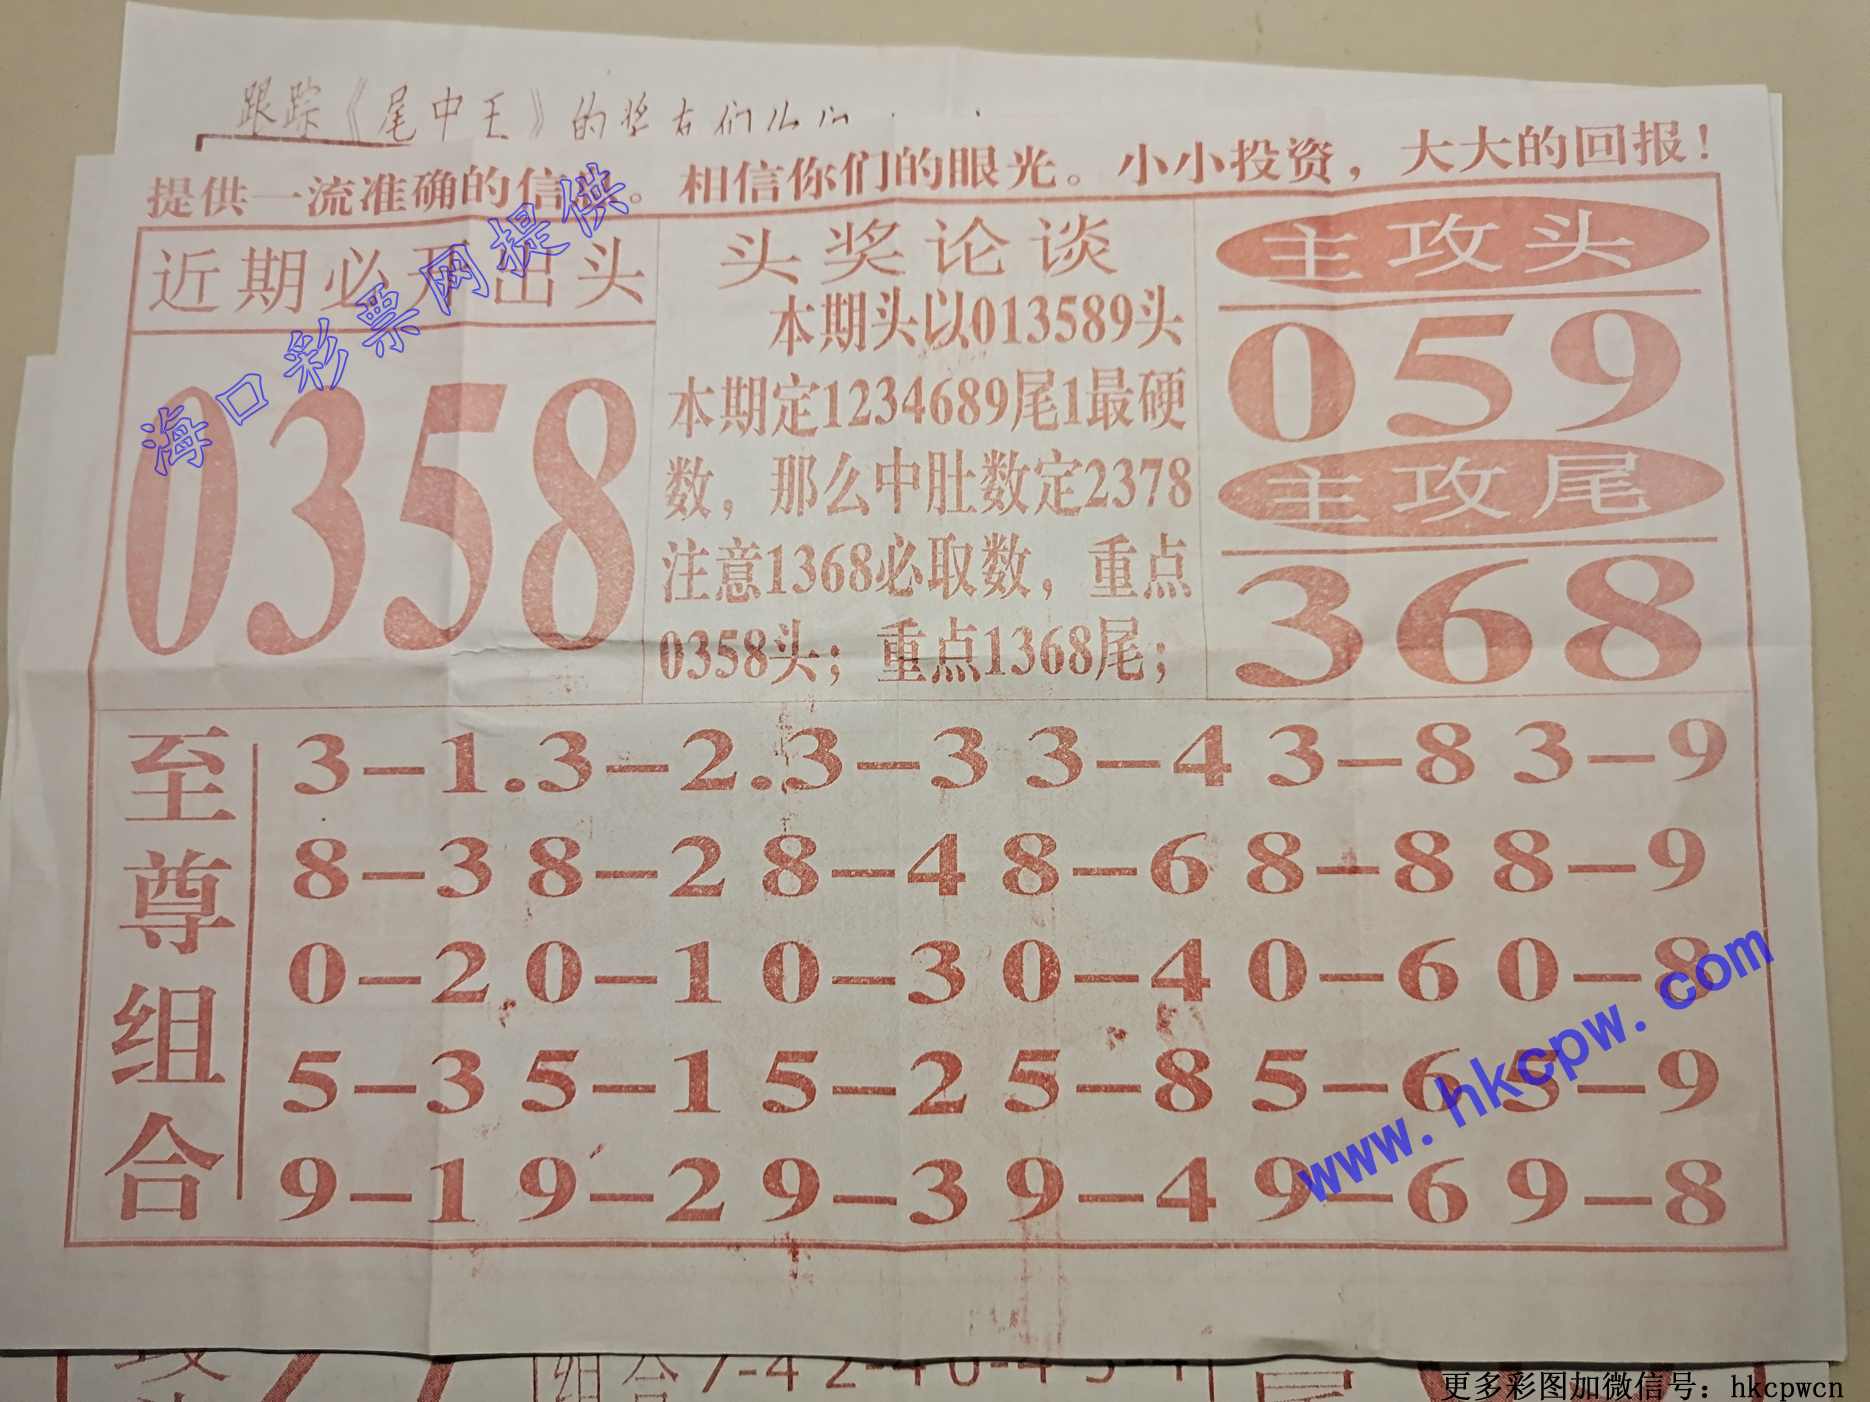 跟踪《尾中王》的奖友们
提供一流准确的信 。相信你们的眼光。小小投资，大大的回报！
近期必开出头
0358
头奖论谈
本期头以013589头
本期定1234689尾1最硬
数，那么中肚数定2378
注意1368必取数，重点
0358头；重点1368尾；
主攻头
059
主攻尾
368
至尊组合
3-1.3-2.3-3 3-4 3-8 3-9
8-3 8-2 8-4 8-6 8-8 8-9
0-2 0-1 0-3 0-4 0-6 0-8
5-3 5-1 5-2 5-8 5-6 5-9
9-1 9-2 9-3 9-4 9-6 9-8
海口彩票网提供
www.hkcpw.com
组合7-4 2-4 0-4 5-4
更多彩图加微信号：hkcpwcn